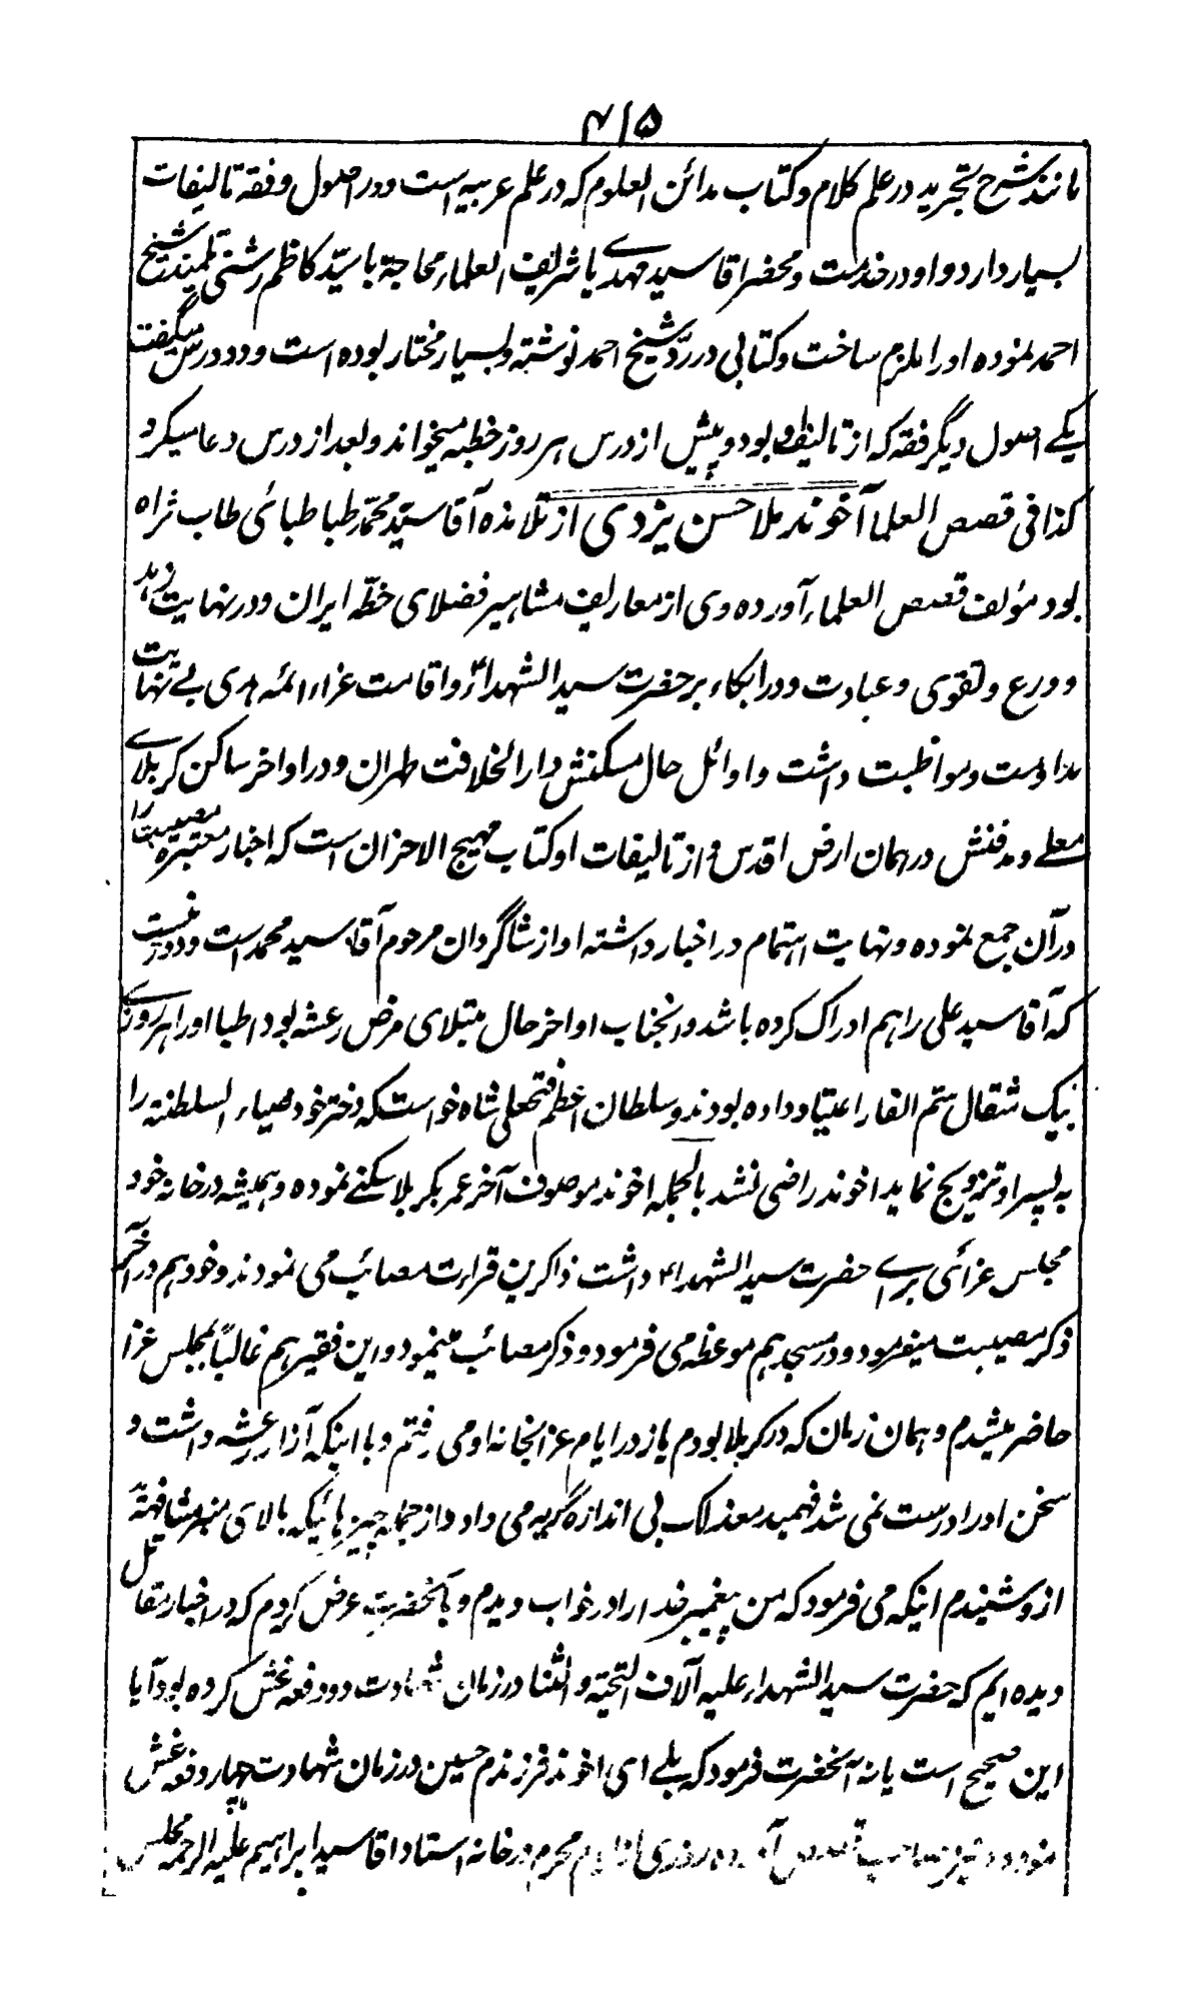 ۴۱۵
مانند شرح تجرید در علم کلام و کتاب مدائن العلوم که در علم عربیه است و در اصول و فقه تالیفات
بسیار دارد و او در خدمت و محضر اقا سید مهدے یا شریف العلماء محاجة با سیّد کاظم رشتی تلمیذ شیخ
احمد نموده او را ملزم ساخت و کتابی در ردّ شیخ احمد نوشته و بسیار مختار بوده است و دو درس میگفت
یکے اصول دیگر فقه که از تالیف او بود و پیش از درس هر روز خطبه میخواند و بعد از درس دعا میکرد
کذا فی قصص العلما آخوند ملا حسن یزدی از تلامذه آقا سیّد محمّد طباطبائی طاب ثراه
بود مؤلف قصص العلماء آورده وی از معاریف مشاهیر فضلای خطّه ایران و در نهایت زهد
و ورع و تقوی و عبادت و در ابکاء بر حضرت سید الشهداءؑ و اقامت عزاء ائمه هدی بے نهایت
مداومت و مواظبت داشت و اوائل حال مسکنش دار الخلافت طهران و در اواخر ساکن کربلاے
معلے و مدفنش در همان ارض اقدس و از تالیفات او کتاب مهیج الاحزان است که اخبار معتبره مصیبت را
در آن جمع نموده و نهایت اهتمام در اخبار داشته او از شاگردان مرحوم آقا سید محمد است و دور نیست
که آقا سید علی را هم ادراک کرده باشد و انجناب اواخر حال مبتلای مرض رعشه بود اطبا او را هر روزے
بیک مثقال سم الفار اعتیاد داده بودند و سلطان اعظم فتحعلی شاه خواست که دختر خود ضیاء السلطنه را
به پسر او تزویج نماید اخوند راضی نشد بالجمله اخوند موصوف آخر عمر بکربلا سکنے نموده و همیشه در خانه خود
مجلس عزائی براے حضرت سید الشهداء داشت ذاکرین قراءت مصائب می نمودند و خود هم در آخر
ذکر مصیبت میفرمود و در مسجد هم موعظه می فرمود و ذکر مصائب مینمود و این فقیر هم غالباً بمجلس عزا
حاضر میشدم و همان زمان که در کربلا بودم باز در ایام عزا بخانه او می رفتم و با اینکه آزار رعشه داشت و
سخن او را درست نمی شد فهمید معذلک بی اندازه گریه می داد و از جمله چیزهائیکه بالای منبر مشافهةً
از و شنیدم اینکه می فرمود که من پیغمبر خدا را در خواب دیدم و بآنحضرت عرض کردم که در اخبار مقاتل
دیده ایم که حضرت سید الشهداء علیه آلاف التحیة و الثنا در زمان شهادت دو دفعه غش کرده بود آیا
این صحیح است یا نه آنحضرت فرمود که بلے ای اخوند فرزندم حسین در زمان شهادت چهار دفعه غش
نمود و نیز صاحب قصص آورده روزی از ایام محرم در خانه استاد اقا سید ابراهیم علیه الرحمه مجلس